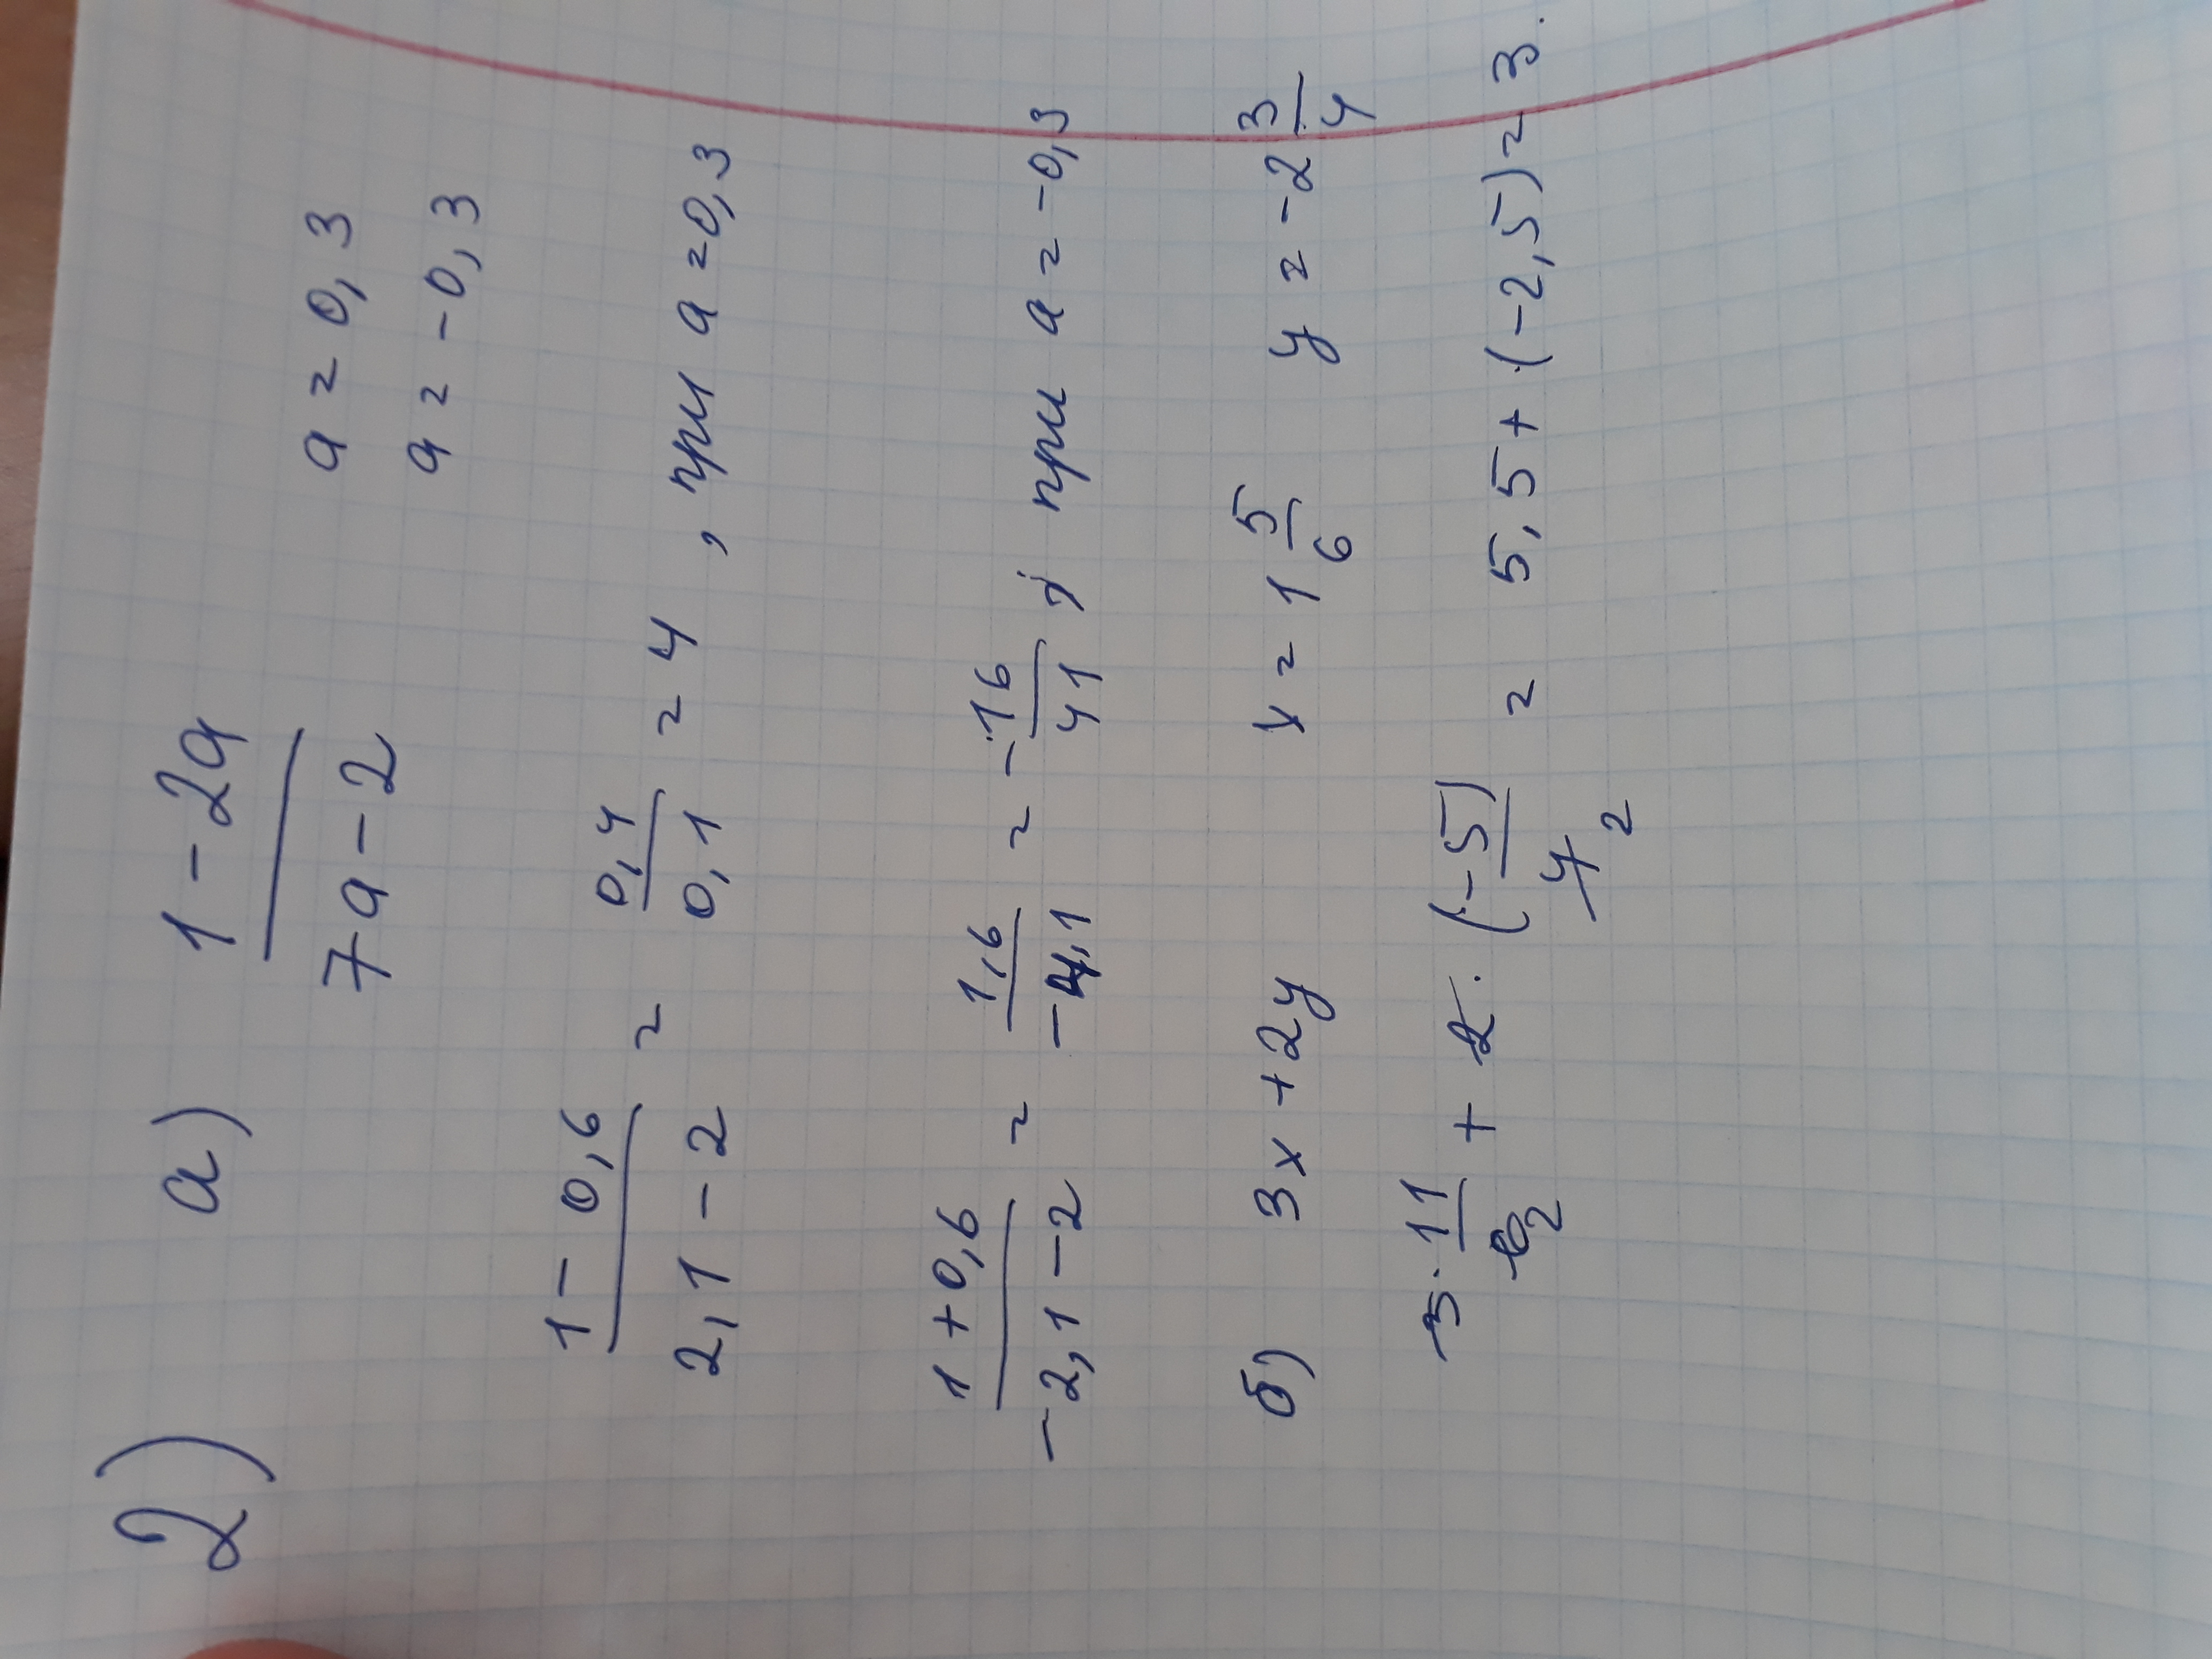 2) а) 1 - 2a / 7a - 2 a = 0,3
a = -0,3
1 - 0,6 / 2,1 - 2 = 0,4 / 0,1 = 4 , при a = 0,3
1 + 0,6 / -2,1 - 2 = 1,6 / -4,1 = - 16 / 41 ; при a = -0,3
б) 3x + 2y x = 1 5/6 y = -2 3/4
3 · 11 / 6 2 + 2 · (-5) / 4 2 = 5,5 + (-2,5) = 3.